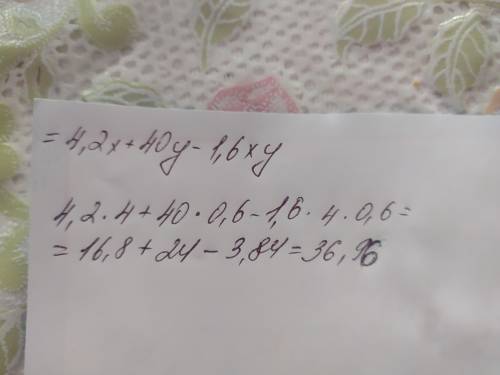 = 4,2x+40y-1,6xy
4,2·4+40·0,6-1,6·4·0,6=
=16,8+24-3,84=36,96